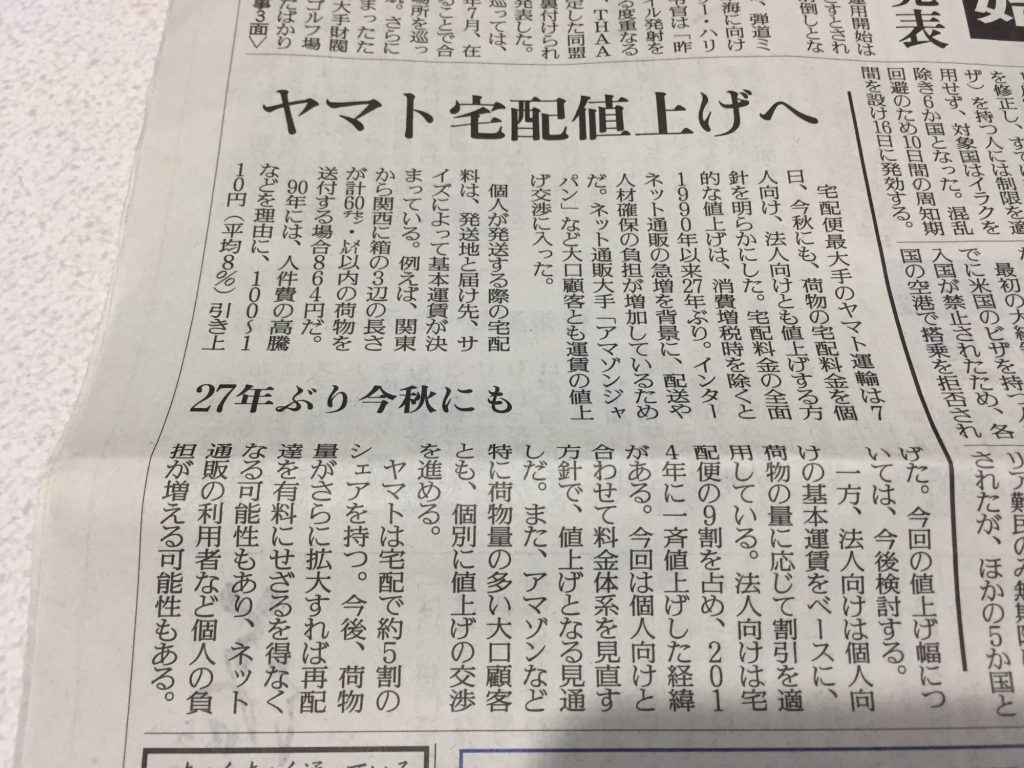 ヤマト宅配値上げへ
27年ぶり今秋にも
宅配便最大手のヤマト運輸は7
日、今秋にも、荷物の宅配料金を個
人向け、法人向けとも値上げする方
針を明らかにした。宅配料金の全面
的な値上げは、消費増税時を除くと
1990年以来27年ぶり。インター
ネット通販の急増を背景に、配送や
人材確保の負担が増加しているため
だ。ネット通販大手「アマゾンジャ
パン」など大口顧客とも運賃の値上
げ交渉に入った。
個人が発送する際の宅配
料は、発送地と届け先、サ
イズによって基本運賃が決
まっている。例えば、関東
から関西に箱の3辺の長さ
が計60㌢・2㌔以内の荷物を
送付する場合864円だ。
90年には、人件費の高騰
などを理由に、100〜1
10円(平均8%)引き上
げた。今回の値上げ幅につ
いては、今後検討する。
一方、法人向けは個人向
けの基本運賃をベースに、
荷物の量に応じて割引を適
用している。法人向けは宅
配便の9割を占め、201
4年に一斉値上げした経緯
がある。今回は個人向けと
合わせて料金体系を見直す
方針で、値上げとなる見通
しだ。また、アマゾンなど
特に荷物量の多い大口顧客
とも、個別に値上げの交渉
を進める。
ヤマトは宅配で約5割の
シェアを持つ。今後、荷物
量がさらに拡大すれば再配
達を有料にせざるを得なく
なる可能性もあり、ネット
通販の利用者など個人の負
担が増える可能性もある。
を修正し、すで
ザ)を持つ人には制限を適
用せず、対象国はイラクを
除き6か国となった。混乱
回避のため10日間の周知期
間を設け16日に発効する。
でに米国のビザを持つ人
入国が禁止されたため、各
国の空港で搭乗を拒否され
リア難民のみ無期限
されたが、ほかの5か国と
発表